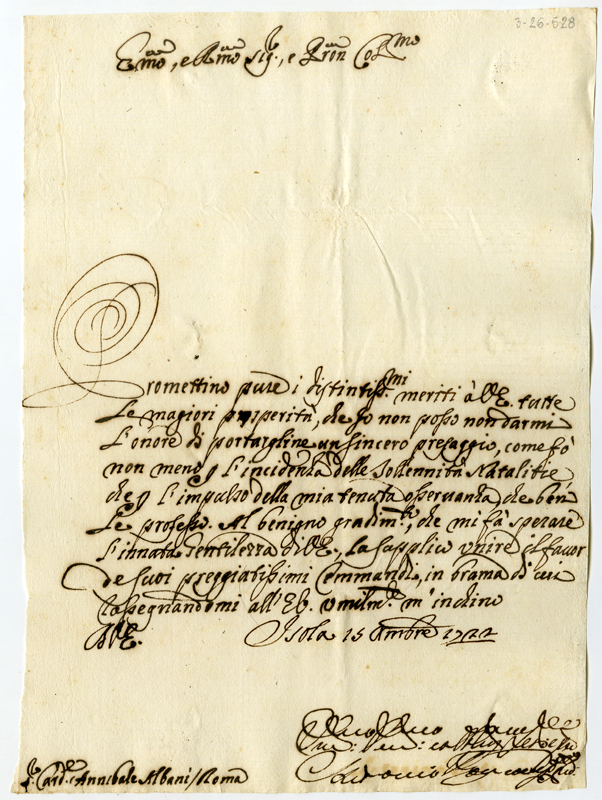 3-26-528
Emo, e Rmo Sig., e Pron Colmo
Promettino pure i distintiss.mi meriti à V.E. tutte
le magiori prosperità, che Io non posso non darmi
l'onore di portargliene un sincero presaggio, come fò
non meno p l'incidenza delle Sollennità Natalitie
che p l'impulso della mia tenuta osservanza che ben
Le professo. Al benigno gradim.to, che mi fà sperare
l'innata Gentilezza di V.E., La supplico unire il favor
de suoi preggiatissimi Commandi, in brama di cui
rassegnandomi all'E.V. umilm.te m'inchino
D.V.E. Isola 15 Xmbre 1722
Antonio
S.r Card.le Annibale Albani / Roma